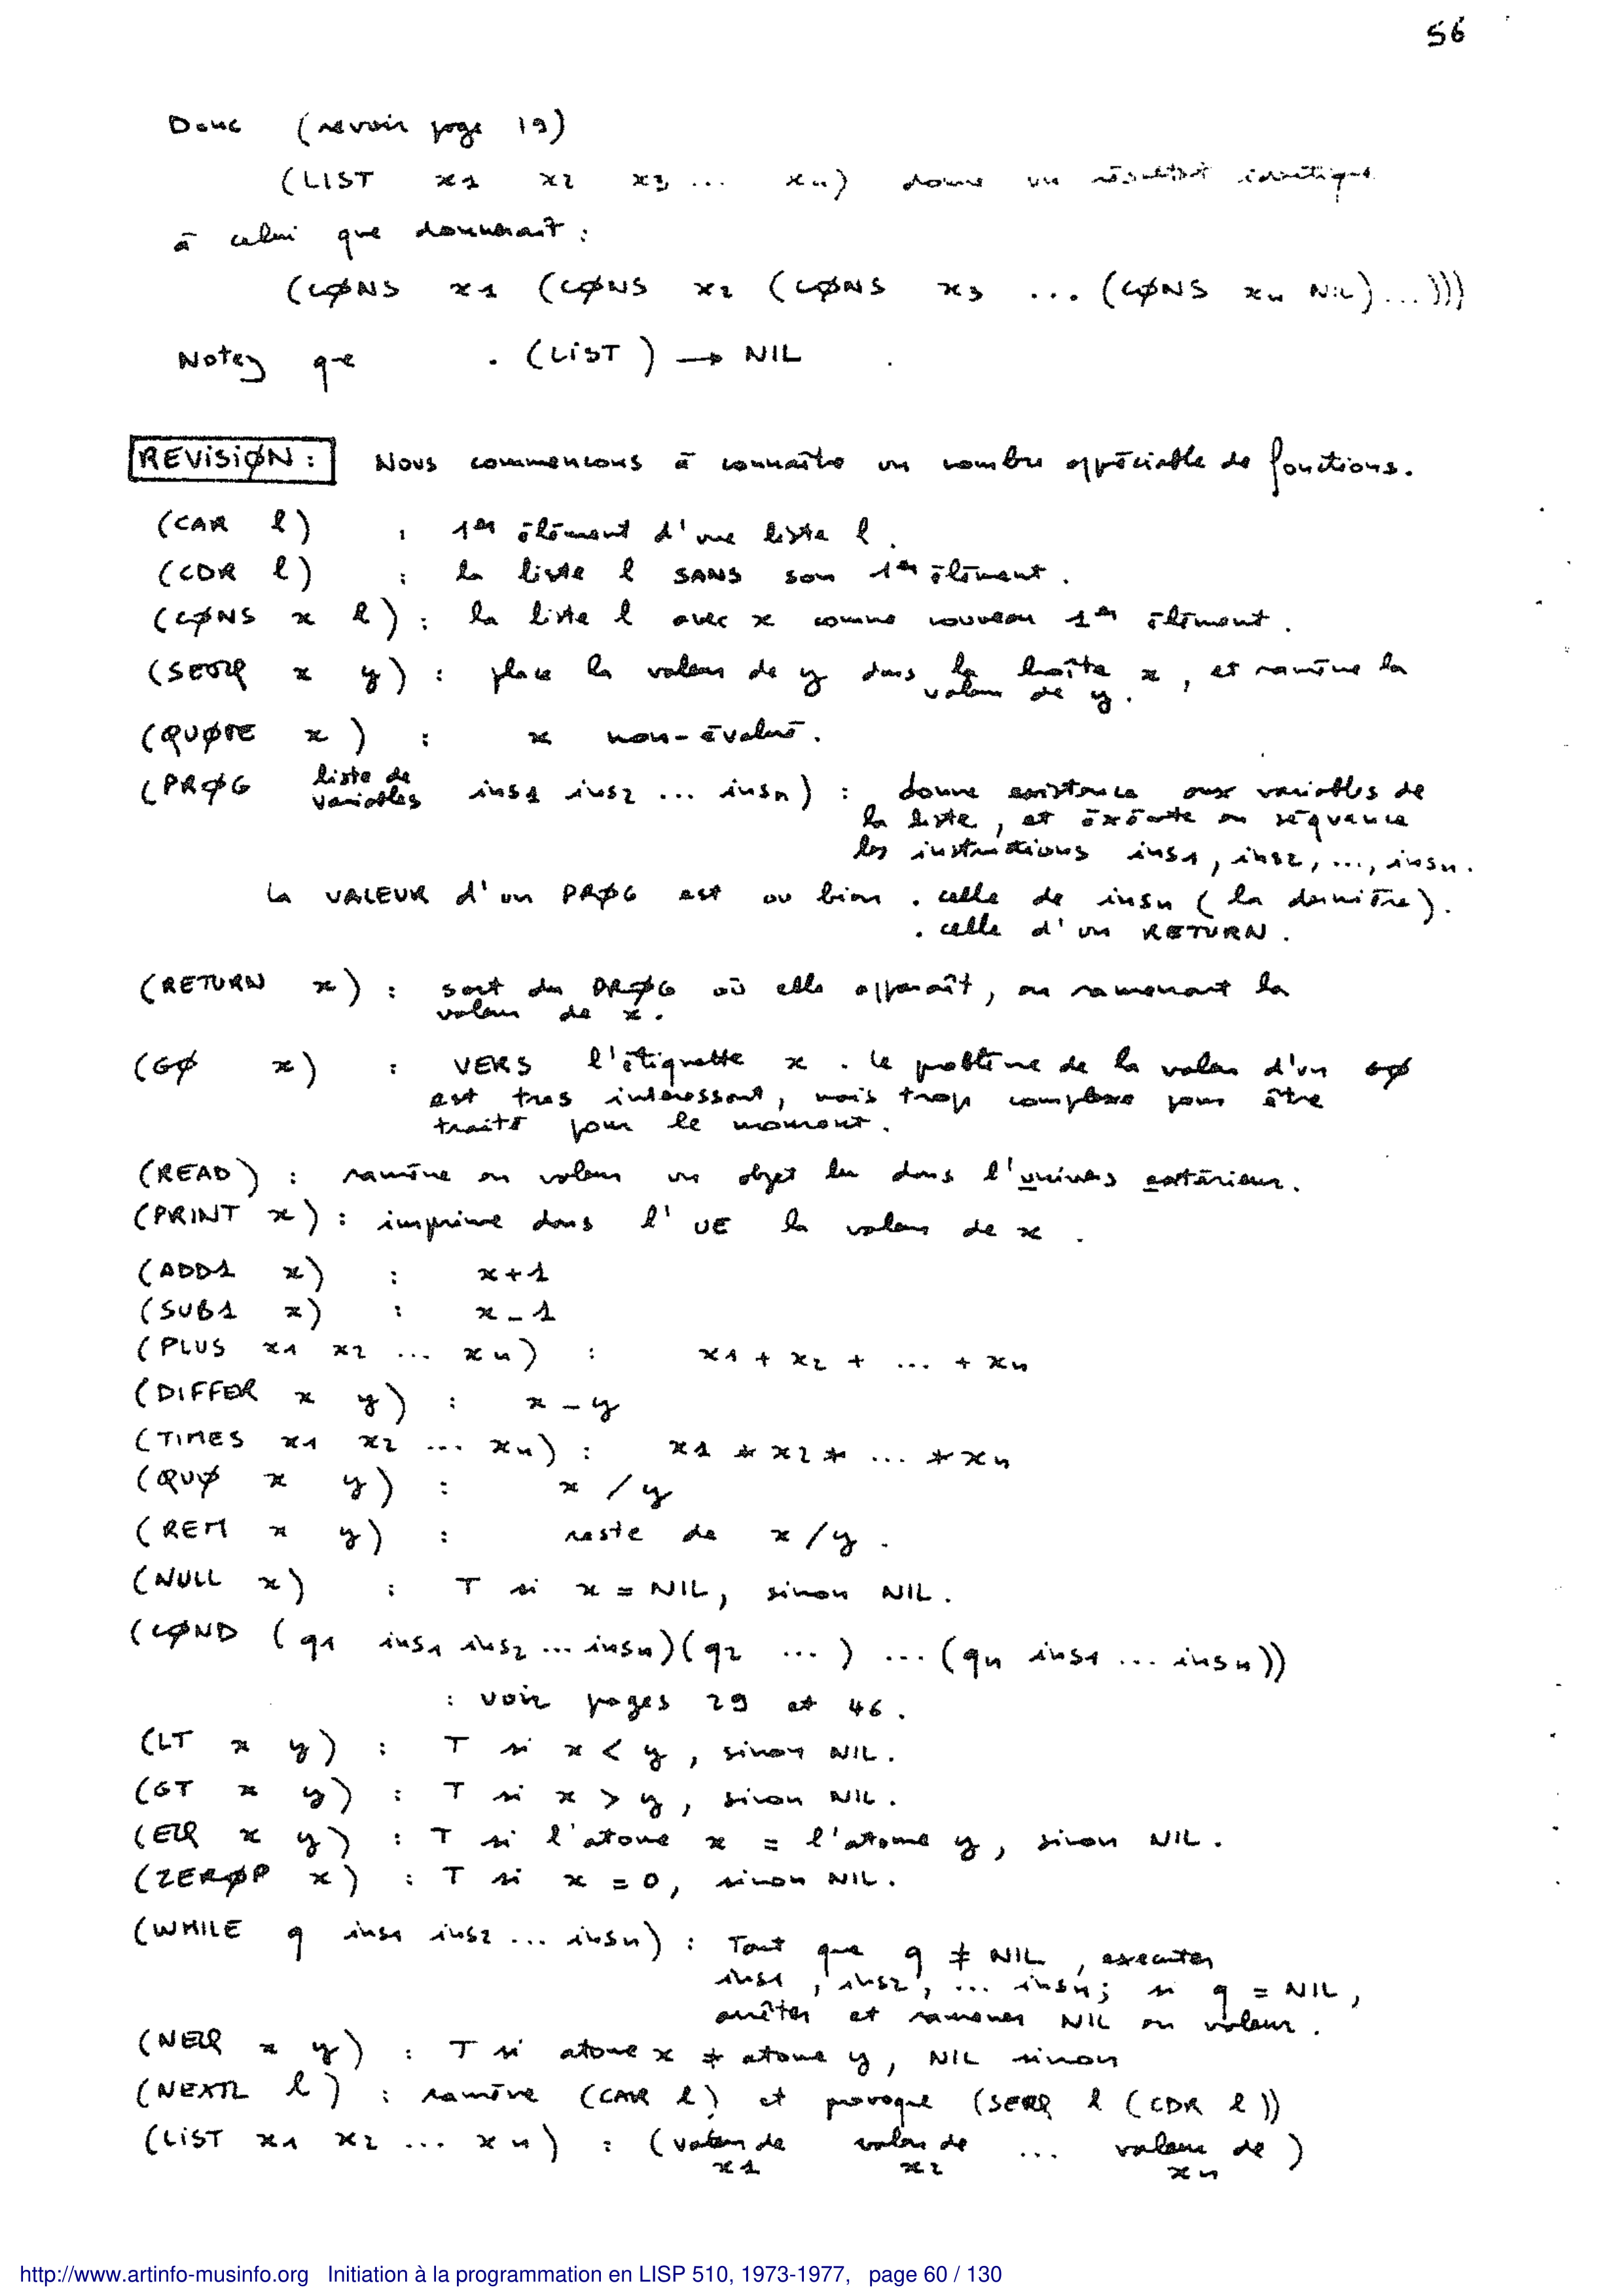 56
Donc (revoir page 19)
(LIST x1 x2 x3 ... xn) donne un résultat identique
à celui que donnerait :
(CØNS x1 (CØNS x2 (CØNS x3 ... (CØNS xn NIL)...)))
Notez que . (LIST ) → NIL .
REVISIØN : Nous commencons à connaître un nombre appréciable de fonctions.
(CAR l) : 1er élément d'une liste l.
(CDR l) : la liste l SANS son 1er élément.
(CØNS x l) : la liste l avec x comme nouveau 1er élément.
(SETQ x y) : place la valeur de y dans la boîte x, et ramène la
valeur de y.
(QUØTE x) : x non-évalué.
(PRØG liste de variables ins1 ins2 ... insn) : donne existence aux variables de
la liste, et éxécute en séquence
les instructions ins1, ins2, ..., insn.
La VALEUR d'un PRØG est ou bien . celle de insn (la dernière).
. celle d'un RETURN.
(RETURN x) : sort du PRØG où elle apparaît, en ramenant la
valeur de x.
(GØ x) : VERS l'étiquette x. Le problème de la valeur d'un GØ
est tres interessant, mais trop complexe pour être
traité pour le moment.
(READ) : ramène en valeur un objet lu dans l'univers extérieur.
(PRINT x) : imprime dans l'UE la valeur de x.
(ADD1 x) : x+1
(SUB1 x) : x-1
(PLUS x1 x2 ... xn) : x1 + x2 + ... + xn
(DIFFER x y) : x - y
(TIMES x1 x2 ... xn) : x1 * x2 * ... * xn
(QUØ x y) : x / y
(REM x y) : reste de x/y.
(NULL x) : T si x = NIL, sinon NIL.
(CØND (q1 ins1 ins2 ... insn)(q2 ... ) ... (qn ins1 ... insn))
: voir pages 29 et 46.
(LT x y) : T si x < y, sinon NIL.
(GT x y) : T si x > y, sinon NIL.
(EQ x y) : T si l'atome x = l'atome y, sinon NIL.
(ZERØP x) : T si x = 0, sinon NIL.
(WHILE q ins1 ins2 ... insn) : Tant que q ≠ NIL, executer
ins1, ins2, ... insn; si q = NIL,
arrêter et ramener NIL en valeur.
(NEQ x y) : T si atome x ≠ atome y, NIL sinon
(NEXTL l) : ramène (CAR l) et provoque (SETQ l (CDR l))
(LIST x1 x2 ... xn) : (valeur de valeur de ... valeur de )
x1 x2 xn
http://www.artinfo-musinfo.org Initiation à la programmation en LISP 510, 1973-1977, page 60 / 130